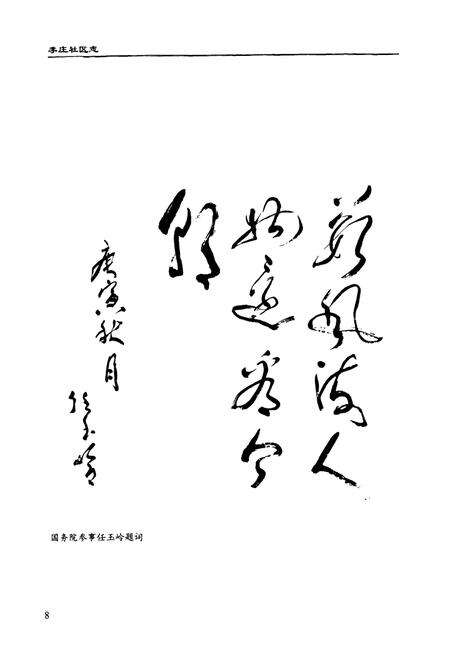 李庄社区志
数风流人
物还看今
朝
庚寅秋月
任玉岭
国务院参事任玉岭题词
8